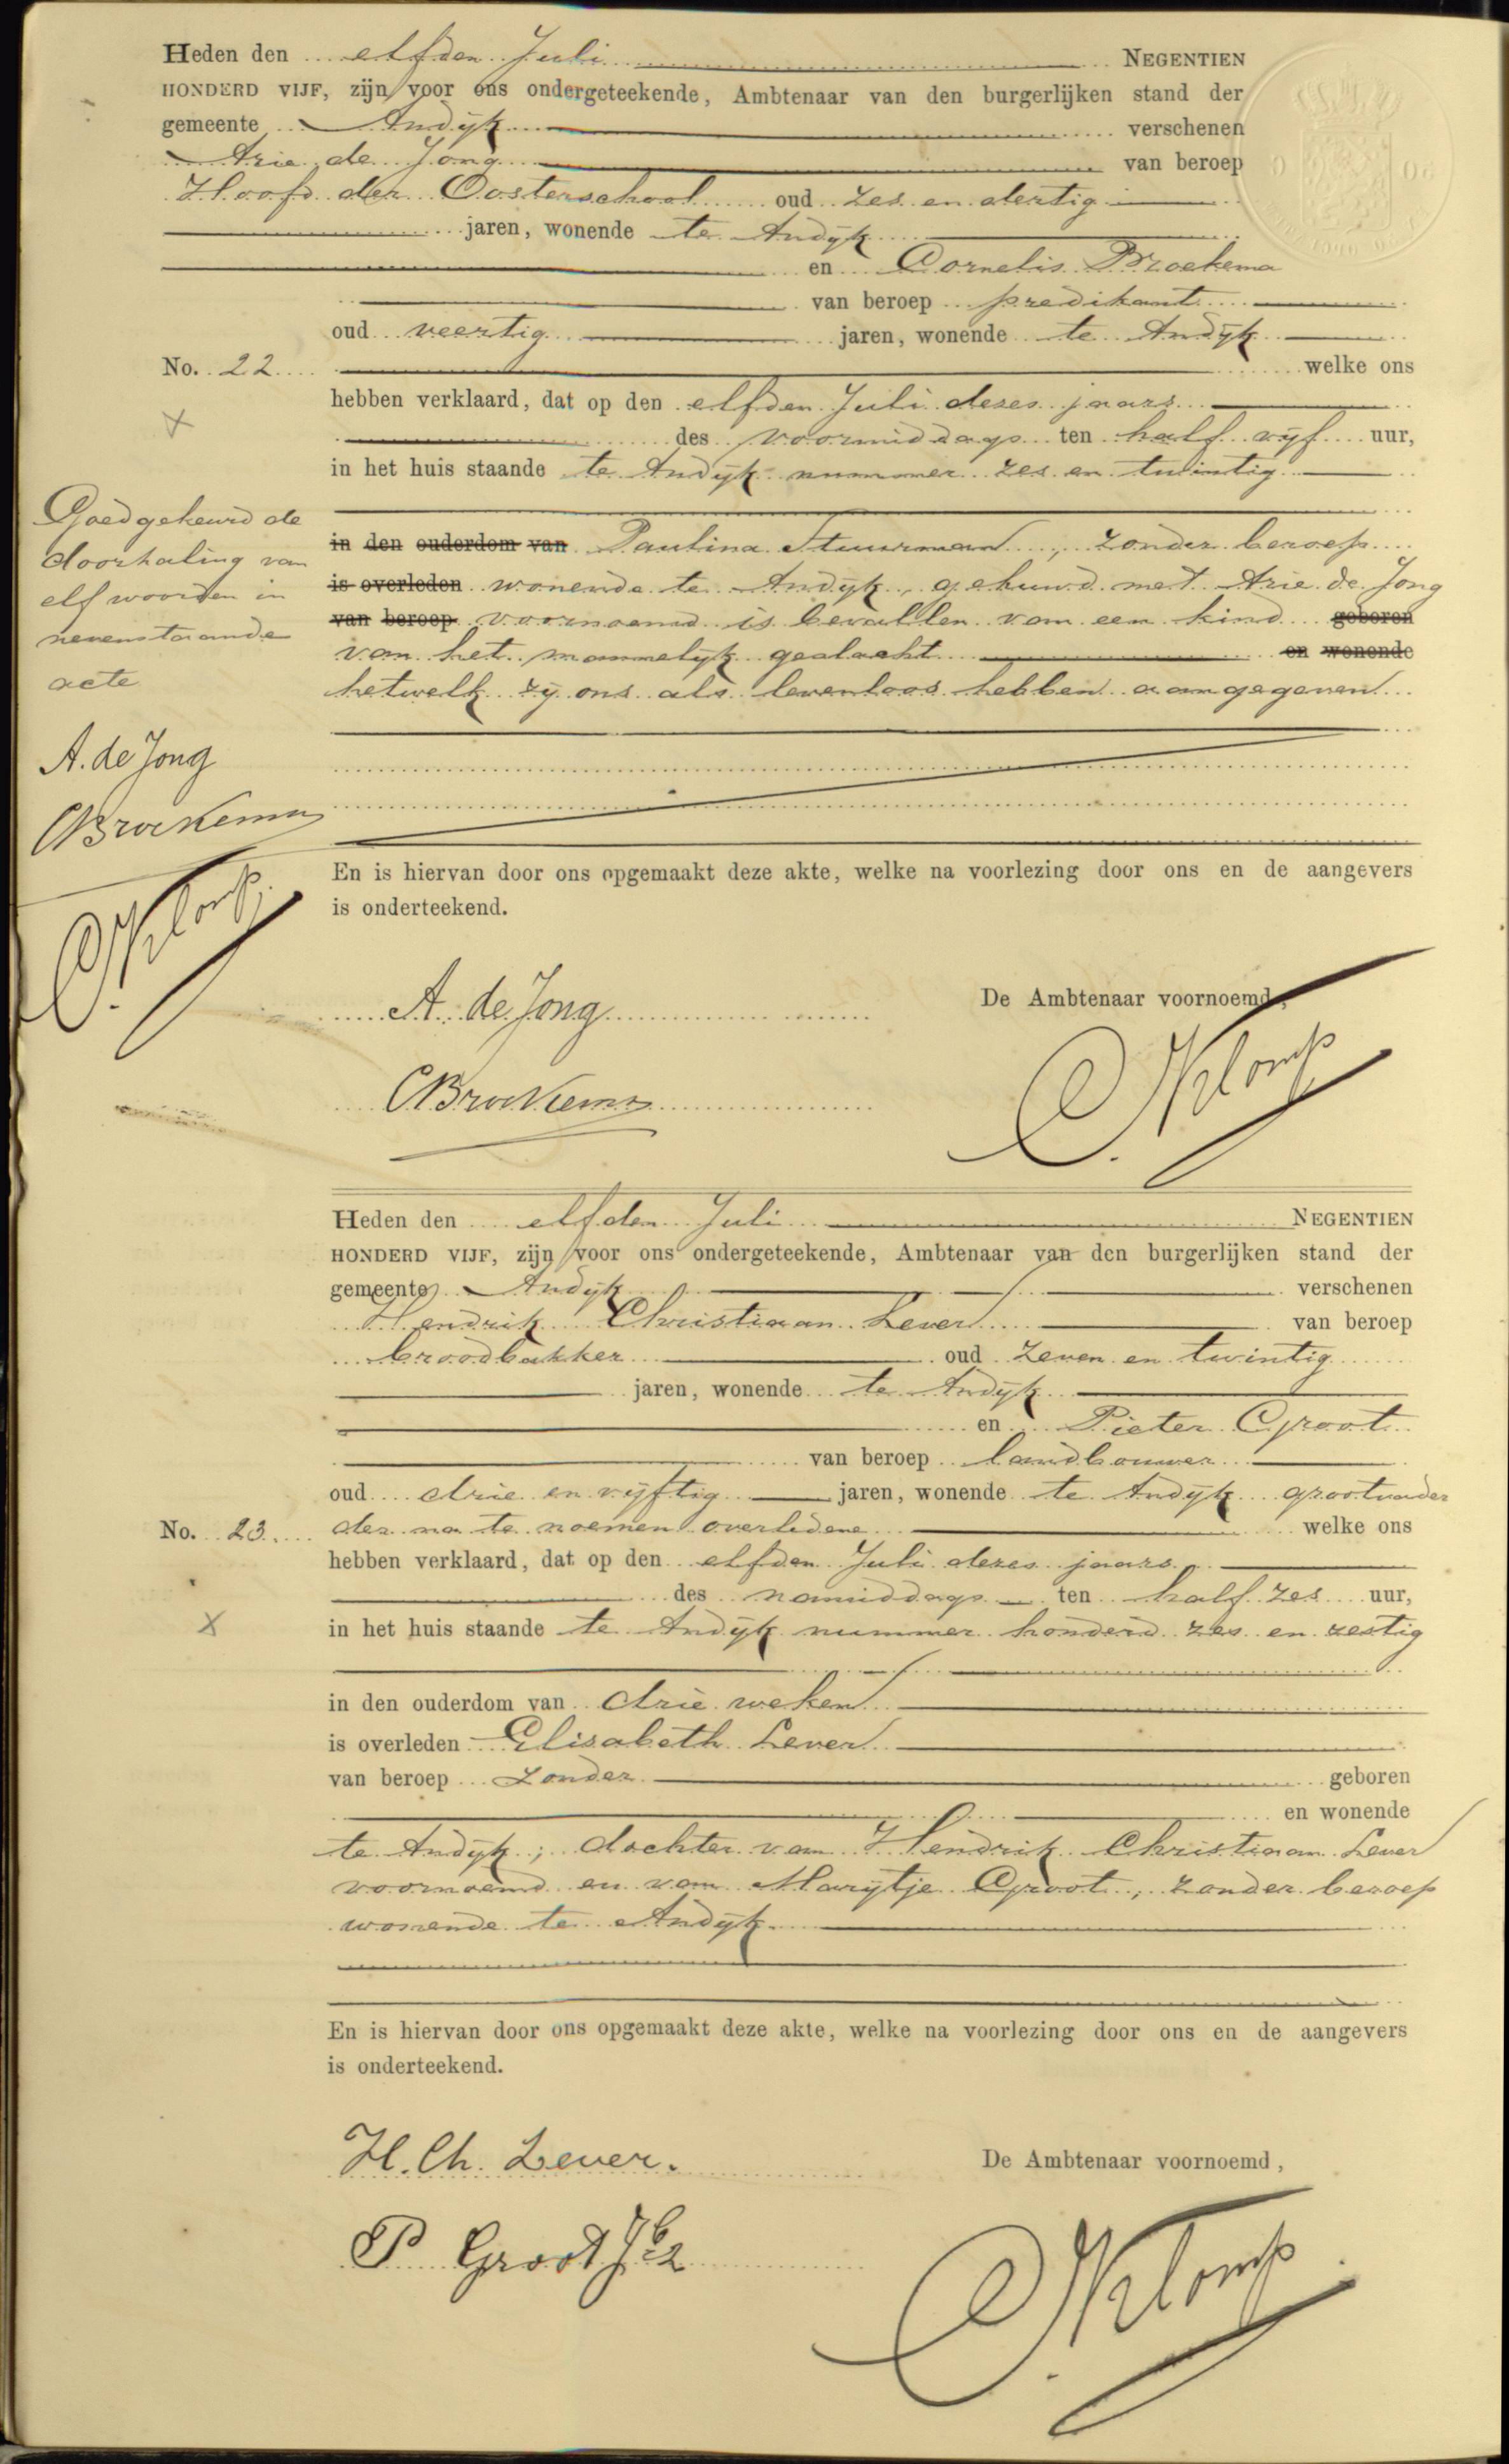 Heden den elfden Juli NEGENTIEN
HONDERD VIJF, zijn voor ons ondergeteekende, Ambtenaar van den burgerlijken stand der
gemeente Andijk verschenen
Arie de Jong van beroep
Hoofd der Oosterschool oud zes en dertig
jaren, wonende te Andijk
en Cornelis Broekema
van beroep predikant
oud veertig jaren, wonende te Andijk
No. 22 welke ons
hebben verklaard, dat op den elfden Juli dezes jaars
des voormiddags ten half vijf uur,
in het huis staande te Andijk nummer zes en twintig
in den ouderdom van Paulina Stuurman, zonder beroep
is overleden wonende te Andijk, gehuwd met Arie de Jong
van beroep voornoemd is bevallen van een kind geboren
van het mannelijk geslacht en wonende
hetwelk zij ons als levenloos hebben aangegeven
Goedgekeurd de
doorhaling van
elf woorden in
nevenstaande
acte
A. de Jong
CBroekema
C. Klomp
En is hiervan door ons opgemaakt deze akte, welke na voorlezing door ons en de aangevers
is onderteekend.
A. de Jong
De Ambtenaar voornoemd,
CBroekema
C. Klomp
Heden den elfden Juli NEGENTIEN
HONDERD VIJF, zijn voor ons ondergeteekende, Ambtenaar van den burgerlijken stand der
gemeente Andijk verschenen
Hendrik Christiaan Lever van beroep
broodbakker oud zeven en twintig
jaren, wonende te Andijk
en Pieter Groot
van beroep landbouwer
oud drie en vijftig jaren, wonende te Andijk grootvader
No. 23. der na te noemen overledene welke ons
hebben verklaard, dat op den elfden Juli dezes jaars
des namiddags ten half zes uur,
in het huis staande te Andijk nummer honderd zes en zestig
in den ouderdom van drie weken
is overleden Elisabeth Lever
van beroep zonder geboren
en wonende
te Andijk; dochter van Hendrik Christiaan Lever
voornoemd en van Marijtje Groot, zonder beroep
wonende te Andijk.
En is hiervan door ons opgemaakt deze akte, welke na voorlezing door ons en de aangevers
is onderteekend.
H. Ch. Lever.
De Ambtenaar voornoemd,
P Groot
C. Klomp